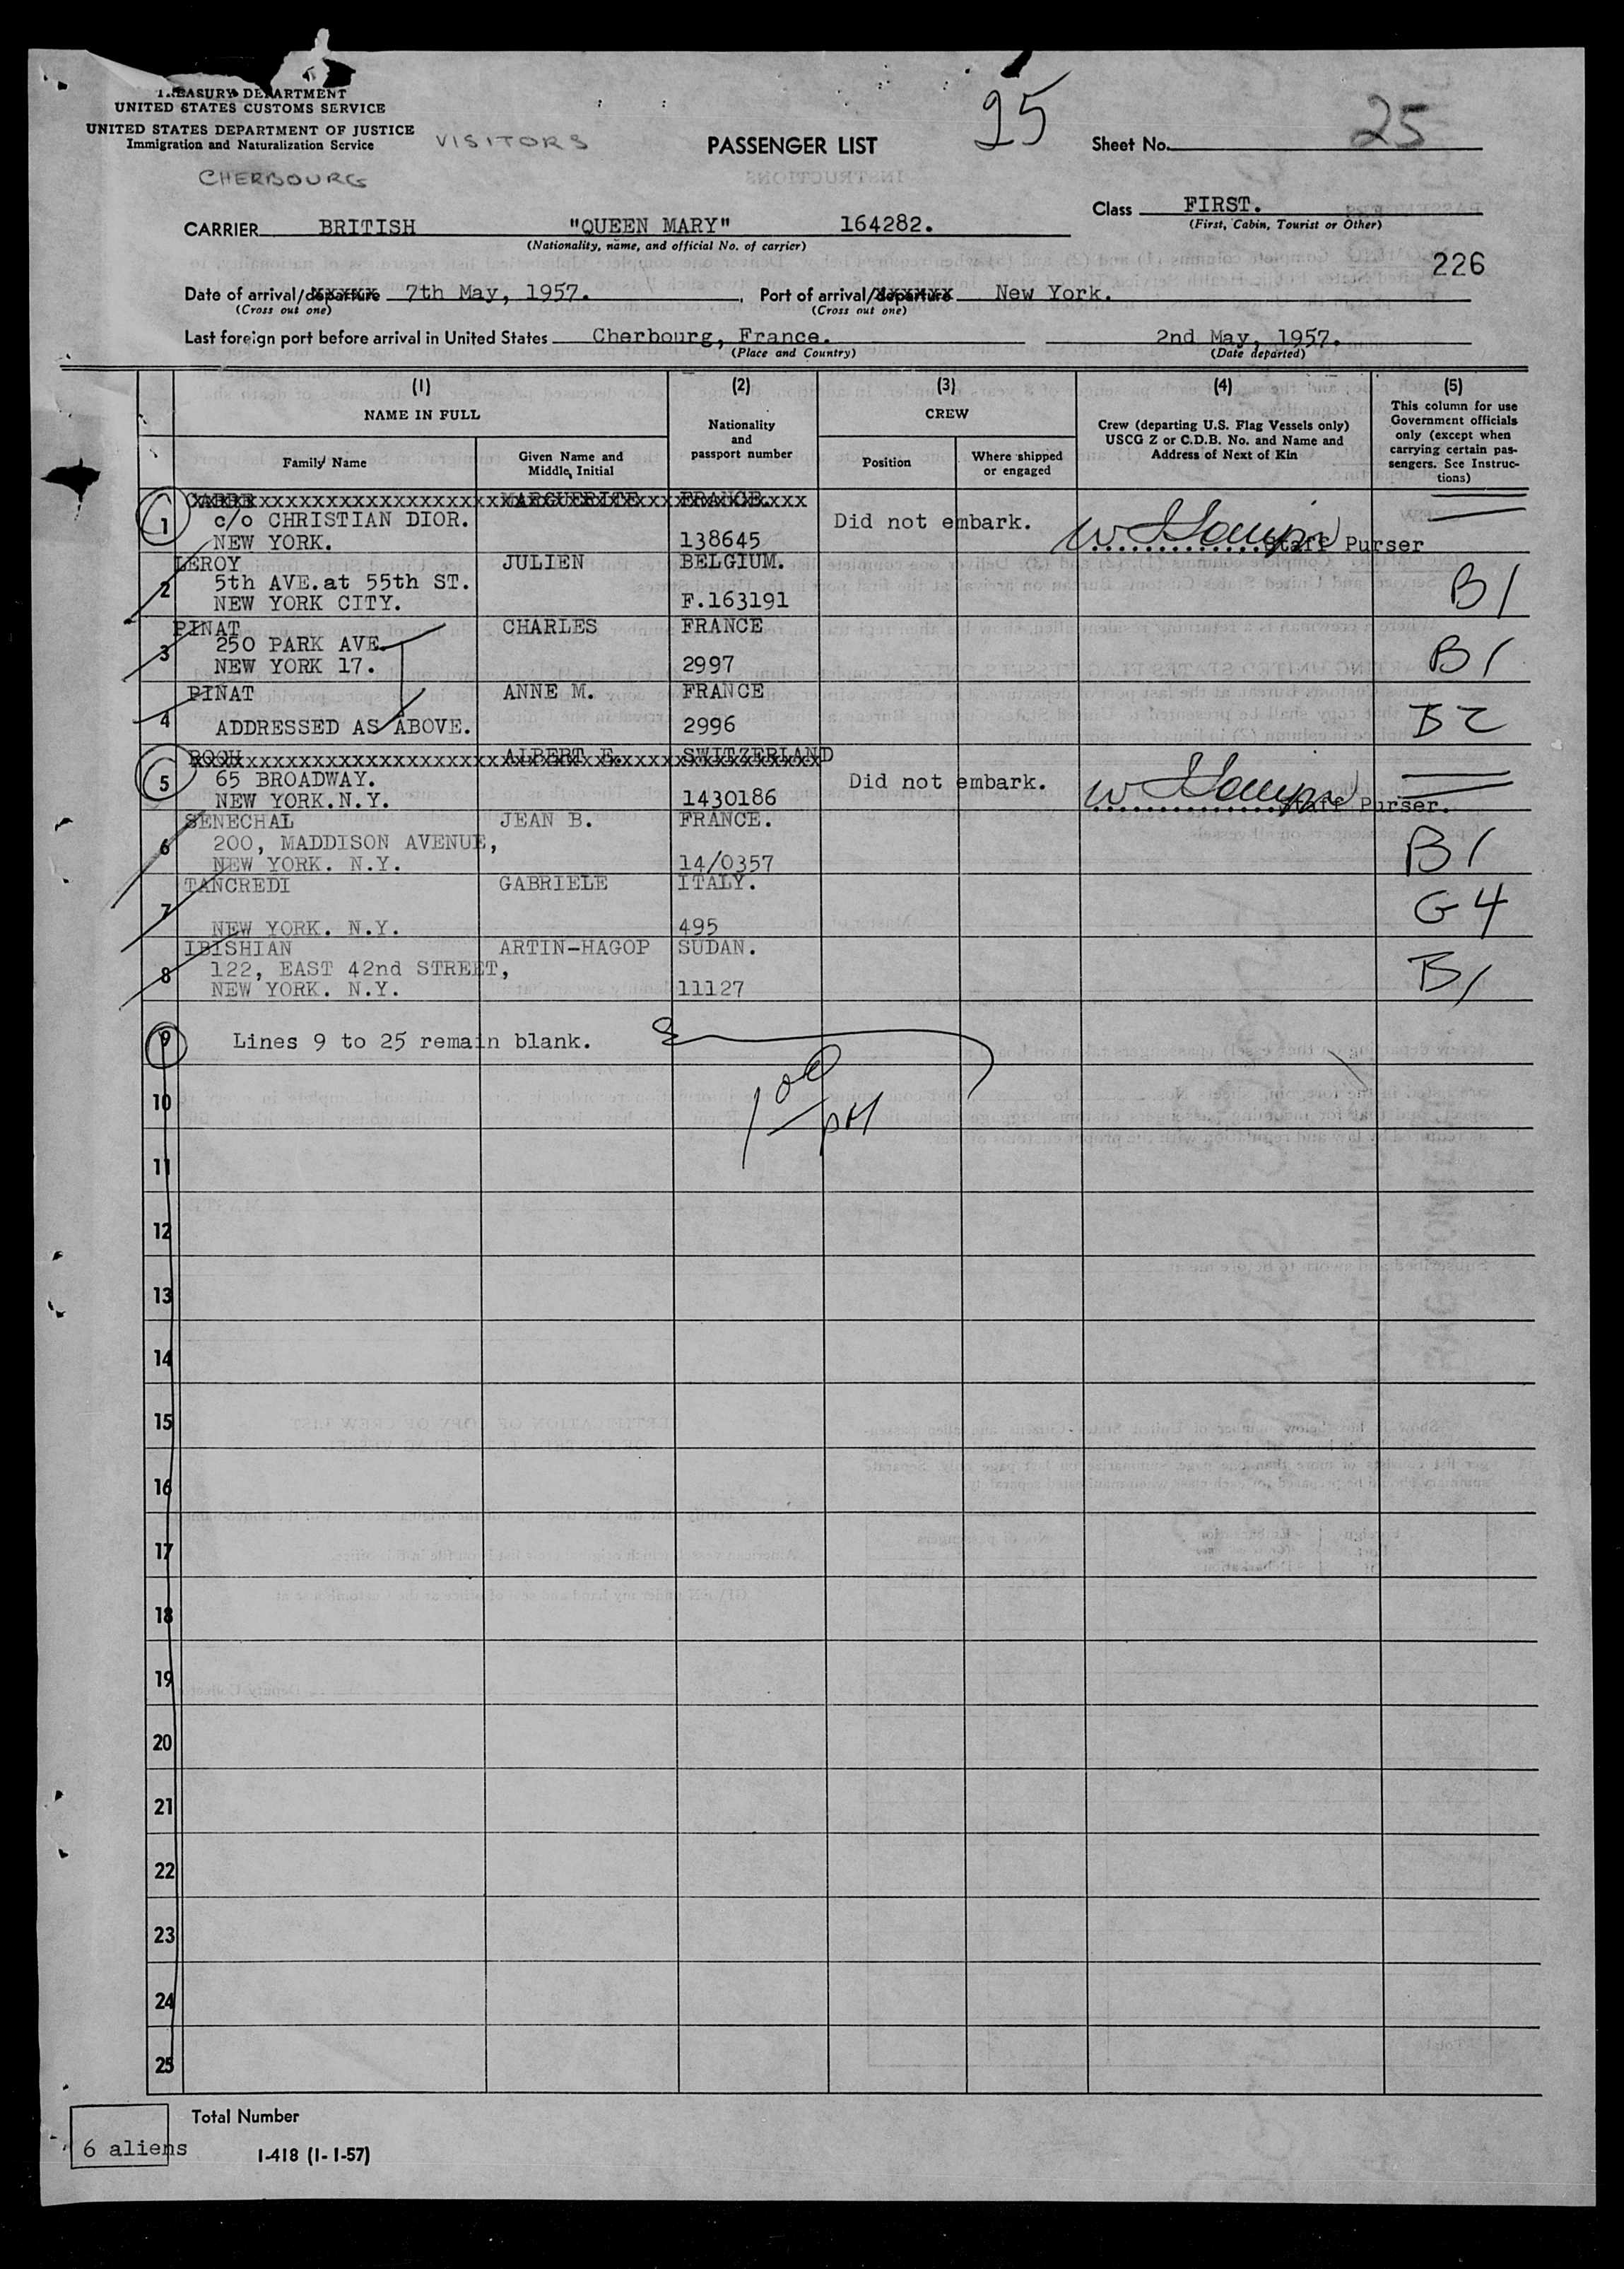 TREASURY DEPARTMENT
UNITED STATES CUSTOMS SERVICE
UNITED STATES DEPARTMENT OF JUSTICE
Immigration and Naturalization Service
VISITORS
PASSENGER LIST
25
Sheet No. 25
CHERBOURG
Class FIRST.
(First, Cabin, Tourist or Other)
CARRIER BRITISH "QUEEN MARY" 164282.
(Nationality, name, and official No. of carrier)
226
Date of arrival/departure 7th May, 1957. Port of arrival/departure New York.
(Cross out one) (Cross out one)
Last foreign port before arrival in United States Cherbourg, France. 2nd May, 1957.
(Place and Country) (Date departed)
(1) (2) (3) (4) (5)
NAME IN FULL
Family Name
Given Name and Middle Initial
Nationality and passport number
CREW
Position
Where shipped or engaged
Crew (departing U.S. Flag Vessels only)
USCG Z or C.D.B. No. and Name and
Address of Next of Kin
This column for use
Government officials
only (except when
carrying certain pas-
sengers. See Instruc-
tions)
1 MARGUERITE FRANCE.
c/o CHRISTIAN DIOR. Did not embark.
NEW YORK. 138645 Staff Purser
2 LEROY JULIEN BELGIUM.
5th AVE.at 55th ST. B1
NEW YORK CITY. F.163191
3 PINAT CHARLES FRANCE
250 PARK AVE. B1
NEW YORK 17. 2997
4 PINAT ANNE M. FRANCE
ADDRESSED AS ABOVE. 2996 B2
5 ALBERT E. SWITZERLAND
65 BROADWAY. Did not embark.
NEW YORK.N.Y. 1430186 Staff Purser.
6 SENECHAL JEAN B. FRANCE.
200, MADDISON AVENUE, B1
NEW YORK. N.Y. 14/0357
7 TANCREDI GABRIELE ITALY.
G4
NEW YORK. N.Y. 495
8 IBISHIAN ARTIN-HAGOP SUDAN.
122, EAST 42nd STREET, B1
NEW YORK. N.Y. 11127
9 Lines 9 to 25 remain blank.
10
11
12
13
14
15
16
17
18
19
20
21
22
23
24
25
Total Number
6 aliens
I-418 (1-1-57)